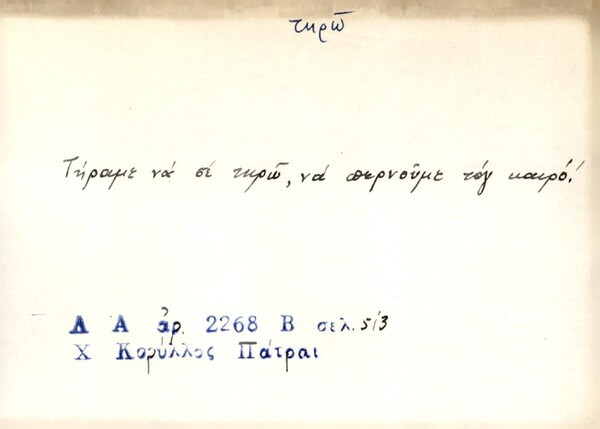 τηρῶ
Τήραμε νά σέ τηρῶ, νά περνοῦμε τόγ καιρό!
Λ Α ἀρ. 2268 Β σελ. 513
Χ Κορύλλος Πάτραι